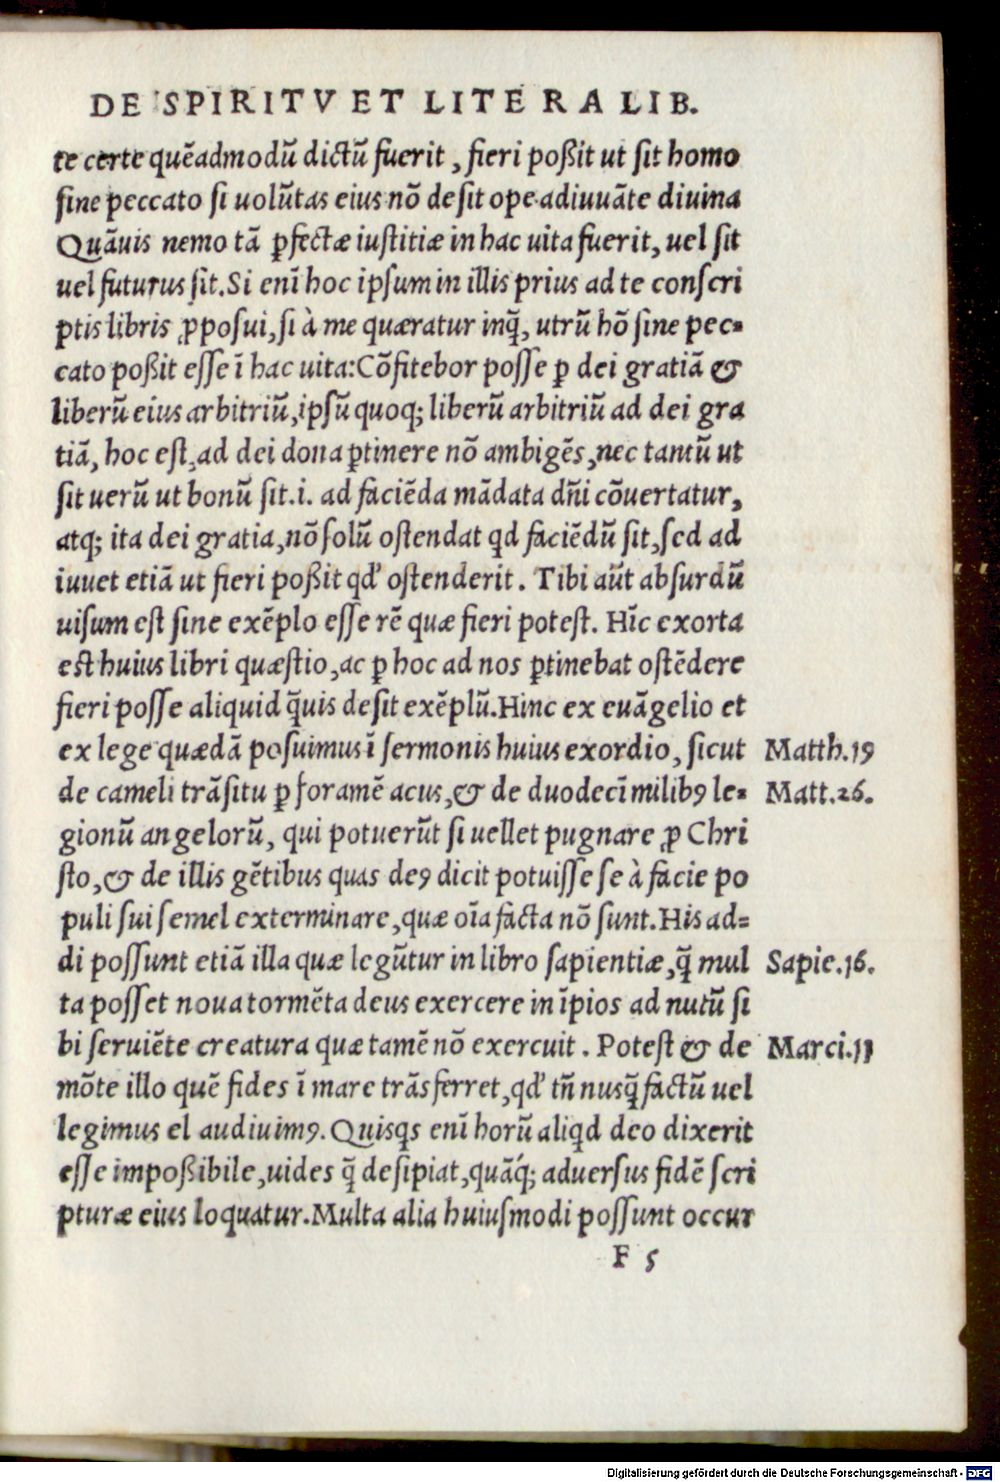 DE SPIRITV ET LITERA LIB.
te certe quēadmodū dictū fuerit, fieri poßit ut sit homo
sine peccato si uolūtas eius nō desit ope adiuuāte diuina
Quāuis nemo tā ꝑfectæ iustitiæ in hac uita fuerit, uel sit
uel futurus sit. Si enī hoc ipsum in illis prius ad te conscri
ptis libris ꝓposui, si à me quæratur inq̄, utrū hō sine pec-
cato poßit esse ī hac uita: Cōfitebor posse ꝑ dei gratiā &
liberū eius arbitriū, ipsū quoq; liberū arbitriū ad dei gra
tiā, hoc est, ad dei dona ꝑtinere nō ambigēs, nec tantū ut
sit uerū ut bonū sit .i. ad faciēda mādata dn̄i cōuertatur,
atq; ita dei gratia, nō solū ostendat qd faciēdū sit, sed ad
iuuet etiā ut fieri poßit qd' ostenderit. Tibi aūt absurdū
uisum est sine exēplo esse rē quæ fieri potest. Hīc exorta
est huius libri quæstio, ac ꝑ hoc ad nos ꝑtinebat ostēdere
fieri posse aliquid q̄uis desit exēplū. Hinc ex euāgelio et
ex lege quædā posuimus ī sermonis huius exordio, sicut Matth.19
de cameli trāsitu ꝑ foramē acus, & de duodecī milibꝰ le- Matt.26.
gionū angelorū, qui potuerūt si uellet pugnare ꝓ Chri
sto, & de illis gētibus quas deꝰ dicit potuisse se à facie po
puli sui semel exterminare, quæ oīa facta nō sunt. His ad=
di possunt etiā illa quæ legūtur in libro sapientiæ, q̄ mul Sapie.16.
ta posset noua tormēta deus exercere in īpios ad nutū si
bi seruiēte creatura quæ tamē nō exercuit. Potest & de Marci.11
mōte illo quē fides ī mare trāsferret, qd' tn̄ nusq̄ factū uel
legimus el audiuimꝰ. Quisqs enī horū aliqd deo dixerit
esse impoßibile, uides q̄ desipiat, quāq́; aduersus fidē scri
pturæ eius loquatur. Multa alia huiusmodi possunt occur
F 5
Digitalisierung gefördert durch die Deutsche Forschungsgemeinschaft - DFG